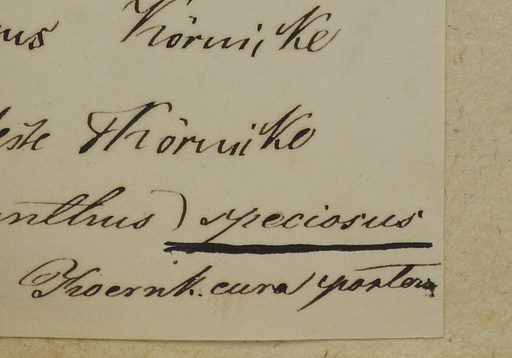 us Körnike
este Körnike
anthus) speciosus
Koernik. cura poster.